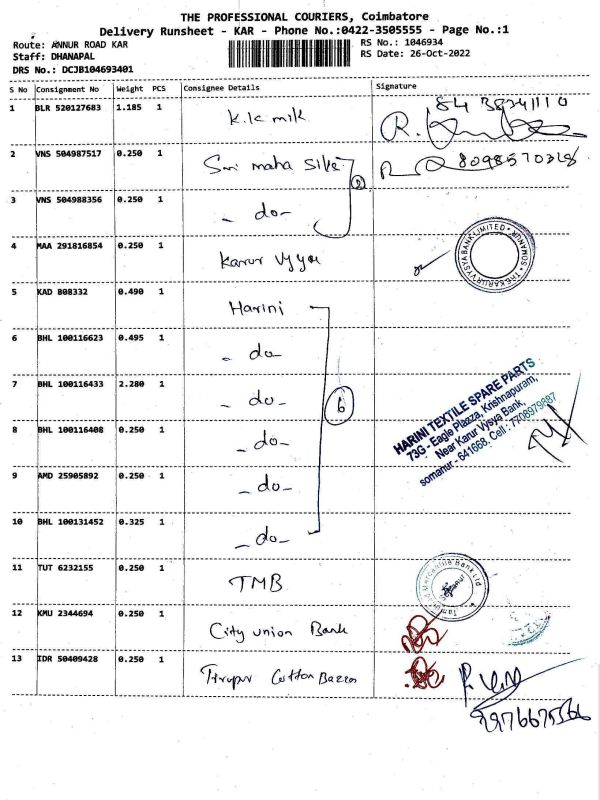 THE PROFESSIONAL COURIERS, Coimbatore
Delivery Runsheet - KAR - Phone No.:0422-3505555 - Page No.:1
Route: ANNUR ROAD KAR
RS No.: 1046934
Staff: DHANAPAL
RS Date: 26-Oct-2022
DRS No.: DCJB104693401
S No Consignment No Weight PCS Consignee Details Signature
1 BLR 520127683 1.185 1 K.k mik
2 VNS 504987517 0.250 1 Sri maha 8098570328
2
3 VNS 504988356 0.250 1 - do-
4 MAA 291816854 0.250 1 Karur Vysya
THE KARUR VYSYA BANK LIMITED SOMANUR
5 KAD 808332 0.490 1 Harini
6 BHL 100116623 0.495 1 - do
7 BHL 100116433 2.280 1 - do-
6
8 BHL 100116408 0.250 1 - do-
9 AMD 25905892 0.250 1 - do-
10 BHL 100131452 0.325 1 - do-
HARINI TEXTILE SPARE PARTS
73G - Eagle Plazza, Krishnapuram,
Near Karur Vysya Bank
somanur - 641668, Cell : 7708979887
11 TUT 6232155 0.250 1 TMB
Tamilnad Mercantile Bank Ltd
12 KMU 2344694 0.250 1 City union Bank
13 IDR 50409428 0.250 1 Tirupur Cotton